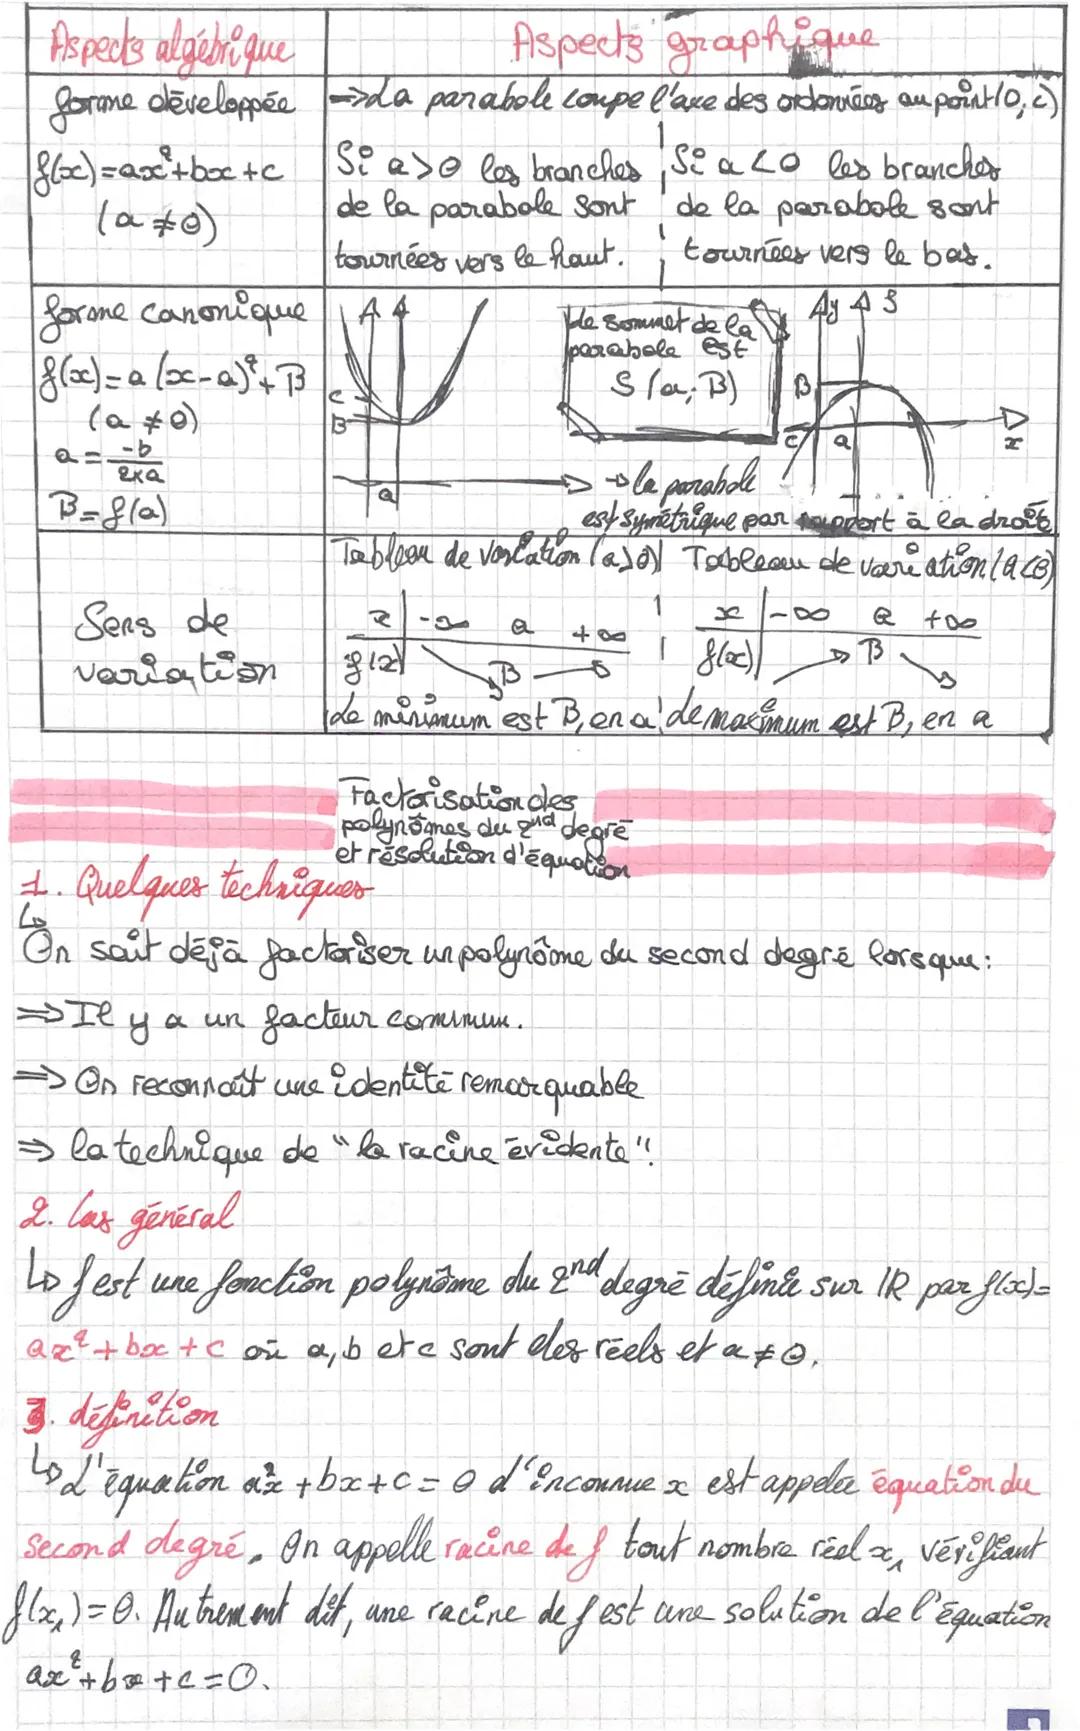 Aspects algébrique
Aspects graphique
forme développée
f(x)=ax²+bx+c
(a≠0)
=>La parabole coupe l'axe des ordonnées au point (0,c)
Si a>0 les branches
de la parabole sont
tournées vers le haut.
Si a<0 les branches
de la parabole sont
tournées vers le bas.
forme canonique
f(x)=a(x-a)²+B
(a≠0)
a=-b/2xa
B=f(a)
C
B
a
Le sommet de la
parabole est
S(a;B)
y
S
B
C
a
x
→ la parabole
est symétrique par rapport à la droite
Sens de
variation
Tableau de variation (a>0)
x -∞ a +∞
f(x) B
Le minimum est B, en a
Tableau de variation (a<0)
x -∞ a +∞
f(x) B
Le maximum est B, en a
Factorisation des
polynômes du 2nd degré
et résolution d'équation
1. Quelques techniques
↳
On sait déjà factoriser un polynôme du second degré lorsque:
=> Il y a un facteur commun.
=> On reconnaît une identité remarquable
=> la technique de "la racine évidente".
2. Cas général
↳ f est une fonction polynôme du 2nd degré définie sur IR par f(x)=
ax²+bx+c où a, b et c sont des réels et a≠0.
3. définition
↳ L'équation ax²+bx+c=0 d'inconnue x est appelée équation du
second degré. On appelle racine de f tout nombre réel x₁ vérifiant
f(x₁)=0. Autrement dit, une racine de f est une solution de l'équation
ax²+bx+c=0.